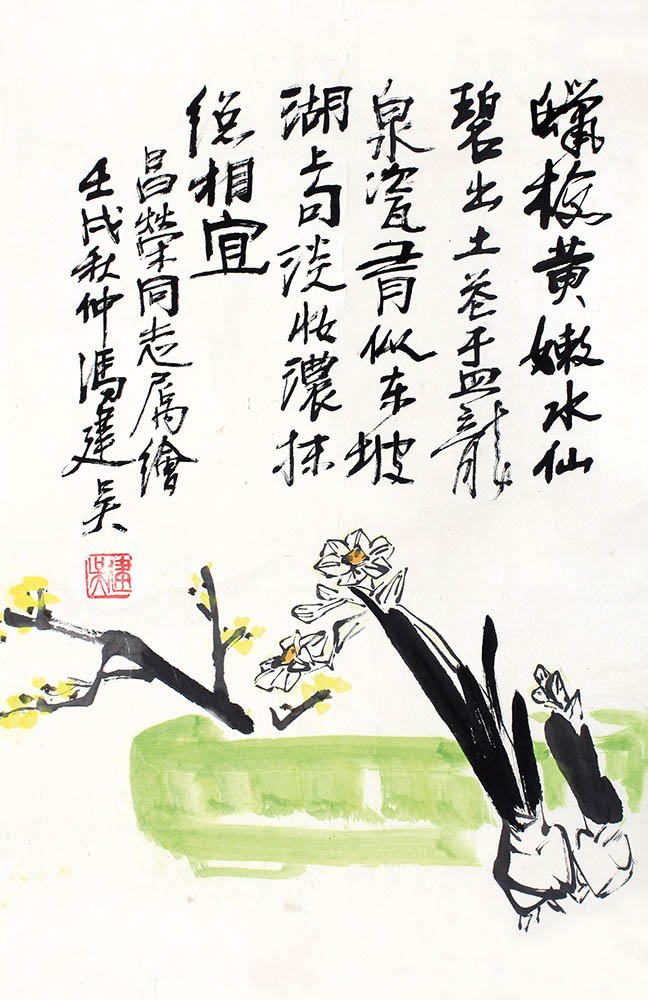 蠟梅黄嫩水仙
碧出土花盂龍
泉瓷青似东坡
湖上句淡妝濃抹
總相宜
昌榮同志属繪
壬戌秋仲馮建吴
建吴